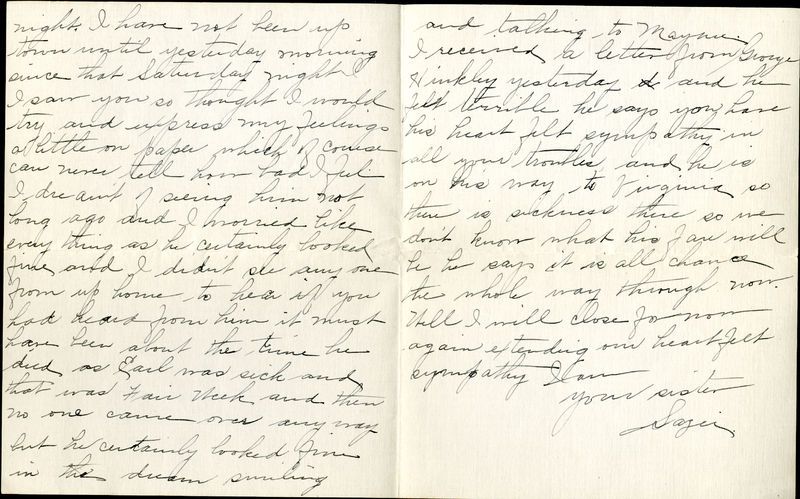 night. I have not been up
town until yesterday morning
since that Saturday night
I saw you so thought I would
try and express my feelings
a little on paper which of course
can never tell how bad I feel
I dreamt of seeing him not
long ago and I worried like
every thing as he certainly looked
fine, and I didn't see any one
from up home to hear if you
had heard from him it must
have been about the time he
died as Earl was sick and
that was Fair Week and then
no one came over any way
but he certainly looked fine
in the dream smiling
and talking to Mayme.
I received a letter from George
Hinkley yesterday and he
felt terrible he says you have
his heart felt sympathy in
all your troubles and he is
on his way to Virginia so
there is sickness there so we
don't know what his fare will
be he says it is all chance
the whole way through now.
Well I will close for now
again extending our heartfelt
sympathy I am
your sister